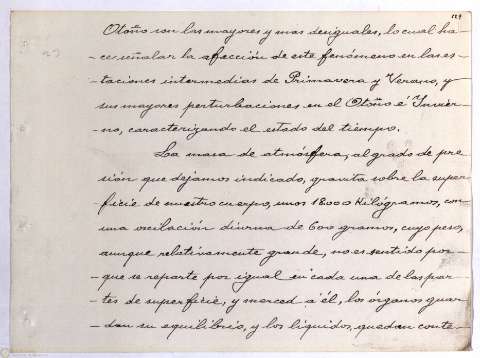 129
Otoño son las mayores y mas desiguales, lo cual ha-
-ce señalar la afección de este fenómeno en las es-
-taciones intermedias de Primavera y Verano, y
sus mayores perturbaciones en el Otoño é Invier-
-no, caracterizando el estado del tiempo.
La masa de atmósfera, al grado de pre-
sión que dejamos indicado, gravita sobre la super-
-ficie de nuestro cuerpo, unos 18000 Kilógramos, con
una oscilación diurna de 600 gramos, cuyo peso,
aunque relativamente grande, no es sentido por-
-que se reparte por igual en cada una de las par-
-tes de superficie, y merced a él, los órganos guar-
-dan su equilibrio, y los líquidos, quedan conte-